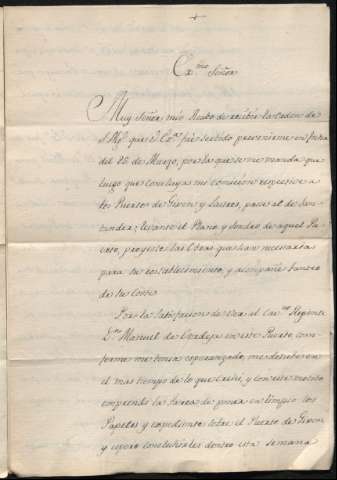 +
Ex.mo Señor
Muy Señor mio Acabo de recibir la orden de
S. Mg. que V. Ex.a fue servido prevenirme en fecha
del 26 de Marzo, por la que se me manda que
luego que concluya mi comision respective a
los Puertos de Gixon y Lastres, pase al de San-
tander; levante el Plano y sondeo de aquel Pu-
erto, proyecte las Obras que sean necesarias
para su establecimiento, y acompañe tanteo
de su coste.
Por la satisfacion de ver el Cav.ro Regente
D.n Manuel de en este Puerto, con-
forme me tenia esperanzado, me detube en
el mas tiempo de lo que crehi, y con este motivo
emprendo la tarea de poner en limpio los
Papeles y expedientes sobre el Puerto de Gixon
y espero concluhirlos dentro esta semana